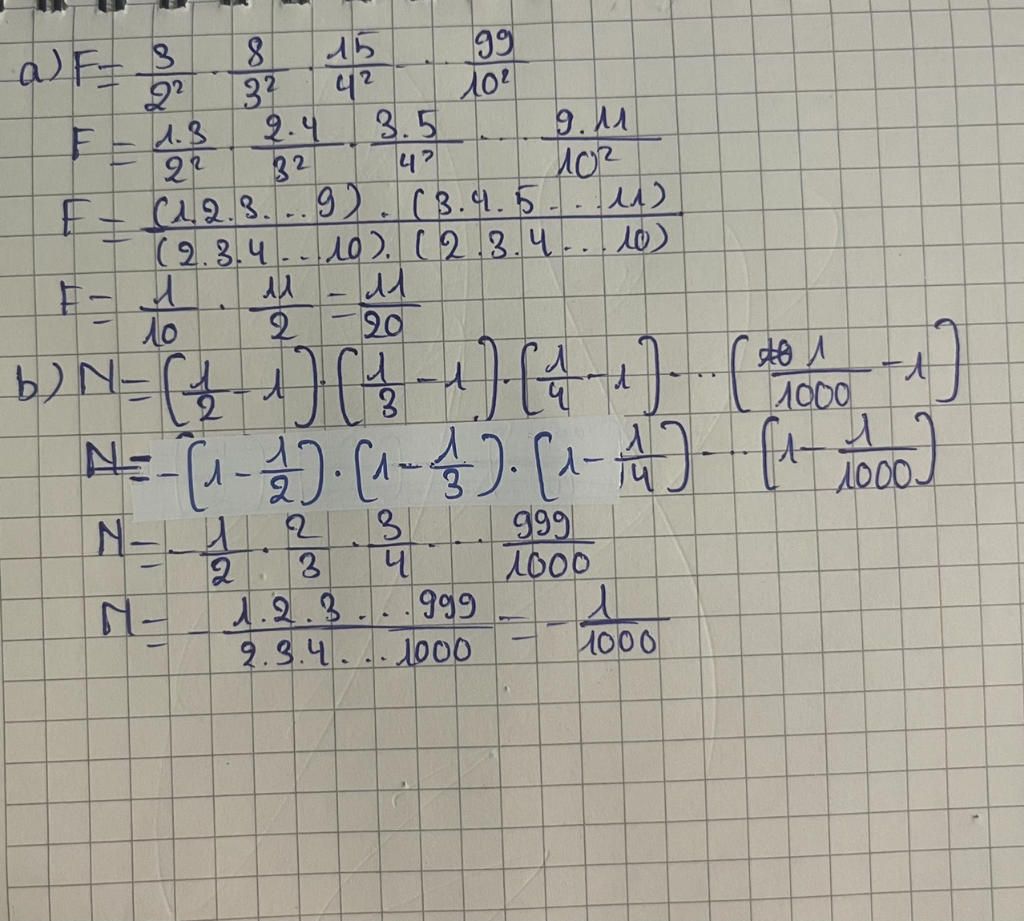 a) F = 3/2² · 8/3² · 15/4² ... 99/10²
F = 1.3/2² · 2.4/3² · 3.5/4² ... 9.11/10²
F = (1.2.3...9) . (3.4.5...11) / (2.3.4...10). (2.3.4...10)
F = 1/10 · 11/2 = 11/20
b) N = (1/2 - 1) · (1/3 - 1) · (1/4 - 1) ... (1/1000 - 1)
N = -(1 - 1/2) · (1 - 1/3) · (1 - 1/4) ... (1 - 1/1000)
N = - 1/2 · 2/3 · 3/4 ... 999/1000
N = - 1.2.3...999 / 2.3.4...1000 = - 1/1000